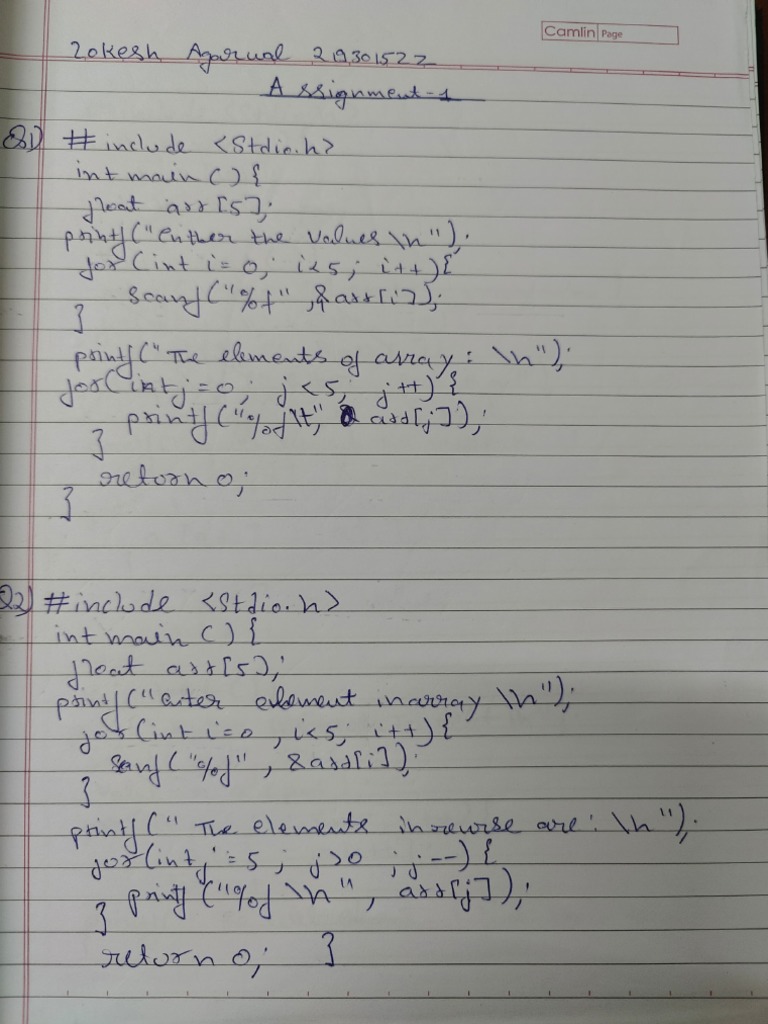 Camlin Page
Lokesh Agarwal 219301522
Assignment-1
Q1) #include <Stdio.h>
int main () {
float arr [5];
printf("Enther the values \n");
for (int i= 0; i<5; i++){
Scanf("%f", &arr[i]);
}
printf("The elements of array: \n");
for(int j=0; j<5; j++) {
printf("%f\t", arr[j]);
}
return 0;
}
Q2) #include <Stdio.h>
int main () {
float arr[5];
printf("enter element in array \n");
for (int i=0 , i<5; i++){
Sanf("%f", &arr[i]);
}
printf(" The elements in rewrse are: \n");
for(int j = 5 ; j>0 ; j--) {
printf ("%f \n", arr[j]);
}
return 0; }